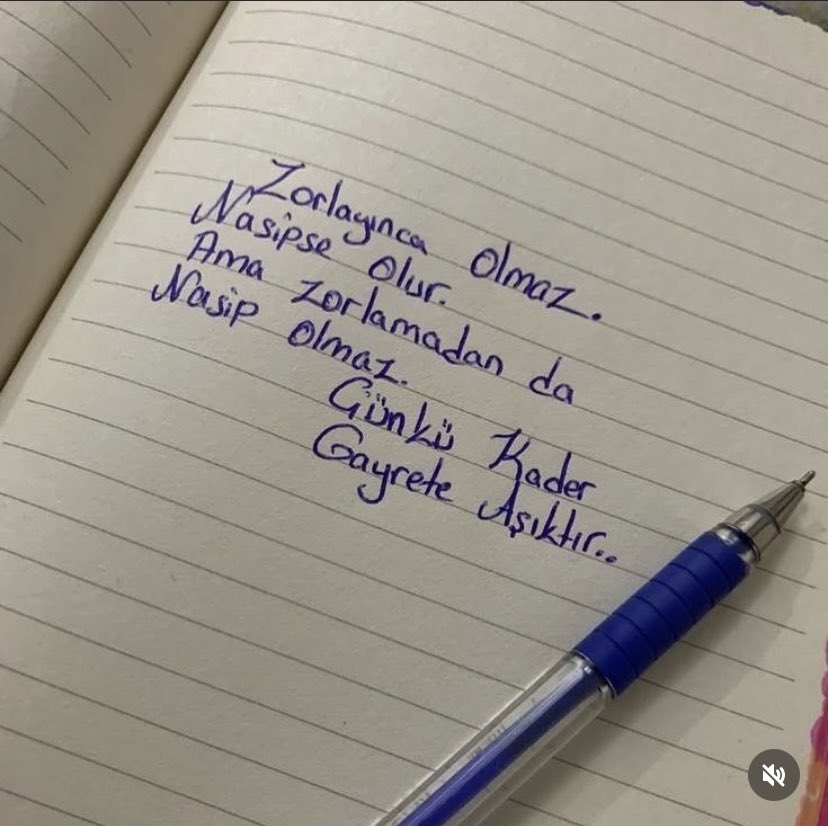 Zorlayınca Olmaz.
Nasipse Olur.
Ama Zorlamadan da
Nasip Olmaz.
Günkü Kader
Gayrete Aşıktır..